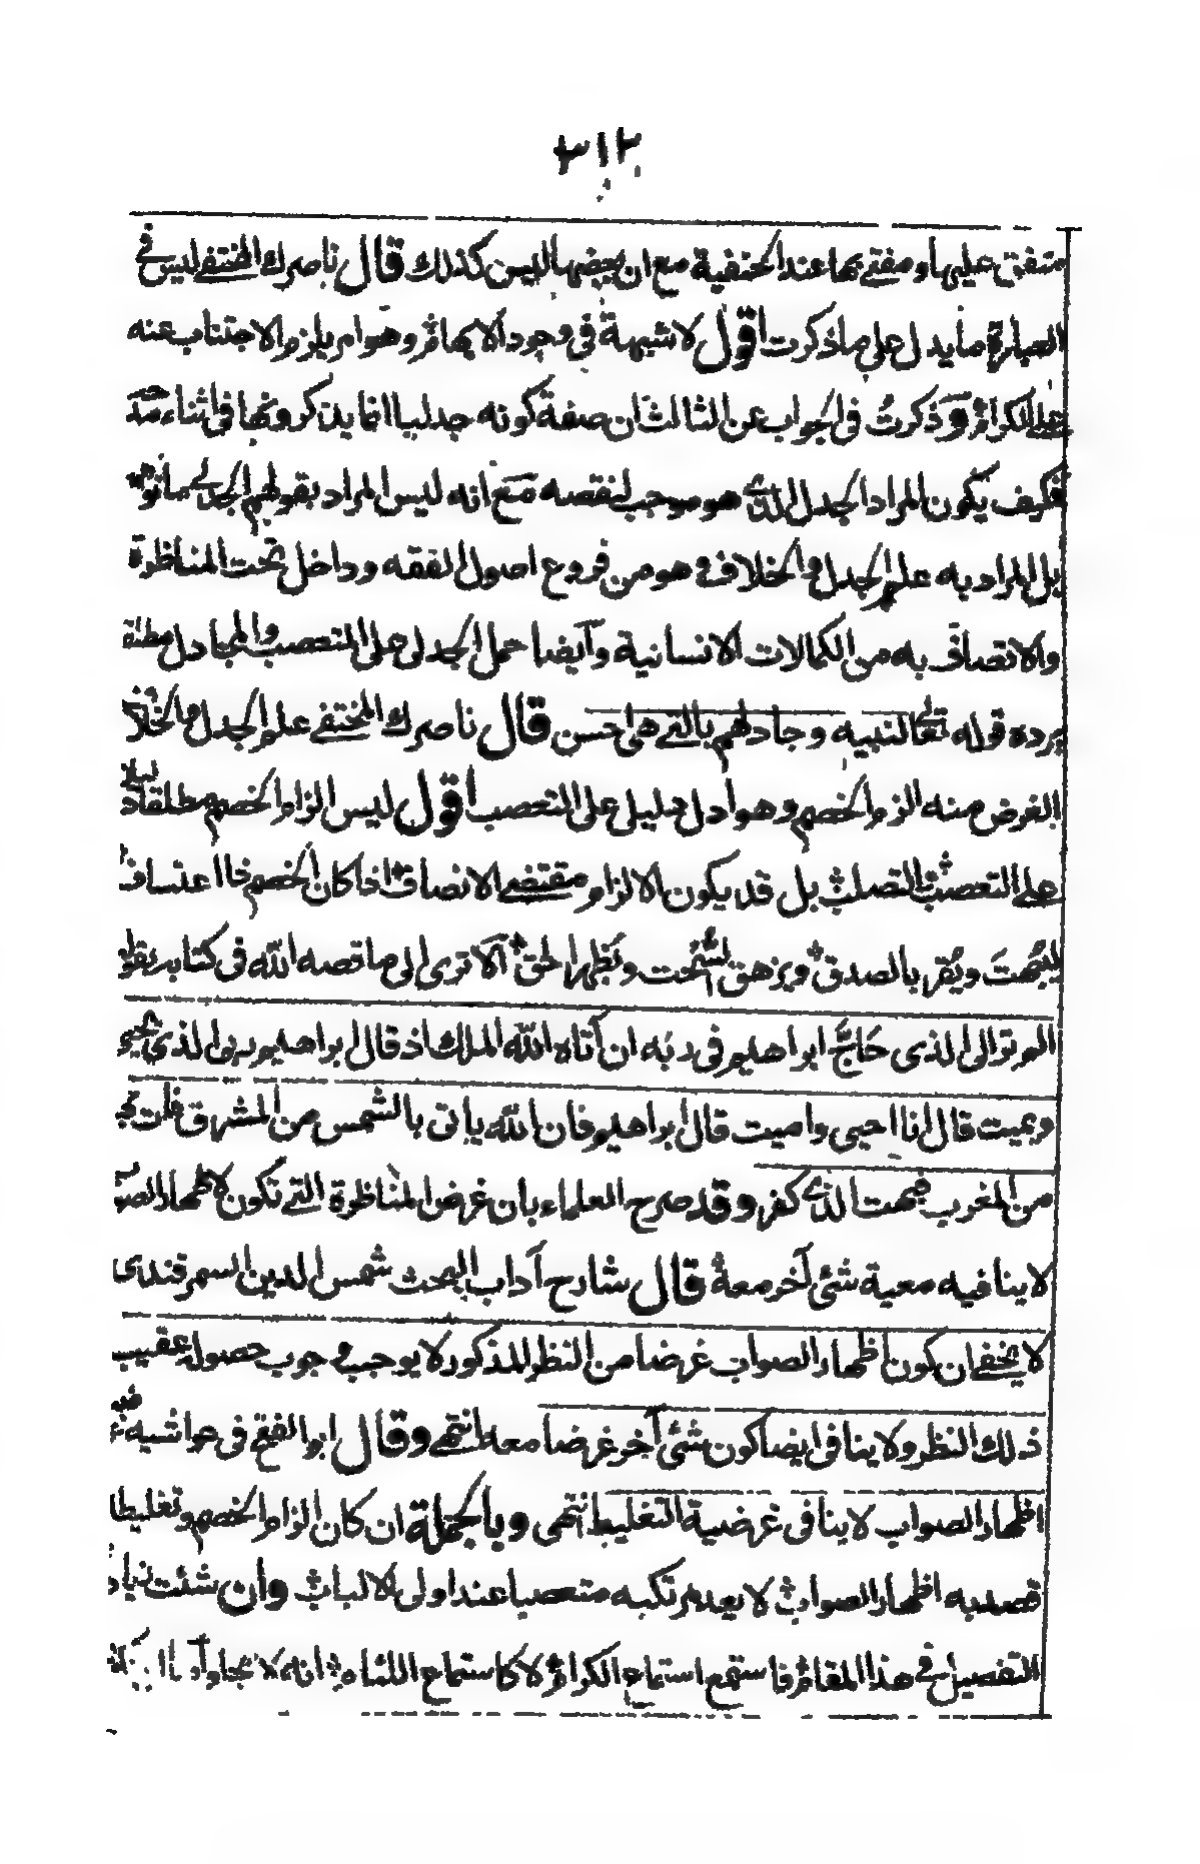 ٣١٢
متفق عليها ومفتى بها عند الحنفية مع ان بعضها ليس كذلك قال ناصرك المختفى ليس فى
العبارة ما يدل على ما ذكرت اقول لا شبهة فى وجود الايهام وهو امر يلزم الاجتناب عنه
على الكرام وذكرت فى الجواب عن الثالث ان صفة كونه جدليا انما يذكرونها فى اثناء مدحه
فكيف يكون المراد الجدل الذى هو موجب لنقصه مع انه ليس المراد بقولهم الجدلى ما
بل المراد به علم الجدل والخلاف وهو من فروع اصول الفقه وداخل تحت المناظرة
والاتصاف به من الكمالات الانسانية وايضا حمل الجدلى على المتعصب والمجادل مطلقا
يرده قوله تعالى لنبيه وجادلهم بالتى هى احسن قال ناصرك المختفى علم الجدل والخلاف
الغرض منه الزام الخصم وهو ادل دليل على التعصب اقول ليس الزام الخصم مطلقا دليلا
على التعصب والتصلب بل قد يكون الالزام مقتضى الانصاف اذا كان الخصم ذا اعتساف
ليبهت ويقر بالصدق ويزهق ويظهر الحق الا ترى الى ما قصه الله فى كتابه بقوله
الم تر الى الذى حاج ابراهيم فى ربه ان آتاه الله الملك اذ قال ابراهيم ربى الذى يحيى
ويميت قال انا احيى واميت قال ابراهيم فان الله ياتى بالشمس من المشرق فات بها
من المغرب فبهت الذى كفر وقد صرح العلماء بان غرض المناظرة التى تكون لاظهار الصواب
لا ينافيه معية شئ آخر معه قال شارح آداب البحث شمس الدين السمرقندى
لا يخفى ان كون اظهار الصواب غرضا من النظر المذكور لا يوجب وجوب حصوله عقيب
ذلك النظر ولا ينافى ايضا كون شئ آخر غرضا معه انتهى وقال ابو الفتح فى حواشيه
اظهار الصواب لا ينافى غرضية التغليط انتهى وبالجملة ان كان الزام الخصم وتغليطا
قصد به اظهار الصواب لا يعد مرتكبه متعصبا عند اولى الالباب وان شئت زيادة
التفصيل فى هذا المقام فاستمع استماع الكرام لا كاستماع اللئام انه لا